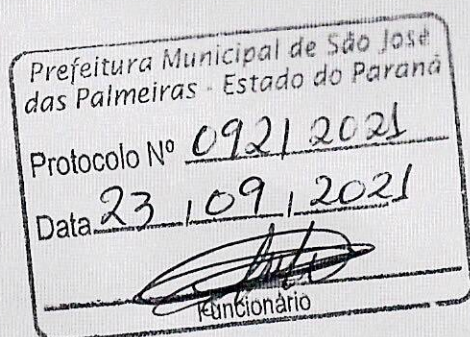 Prefeitura Municipal de São José
das Palmeiras - Estado do Paraná
Protocolo Nº 092/2021
Data 23 / 09 / 2021
Funcionário